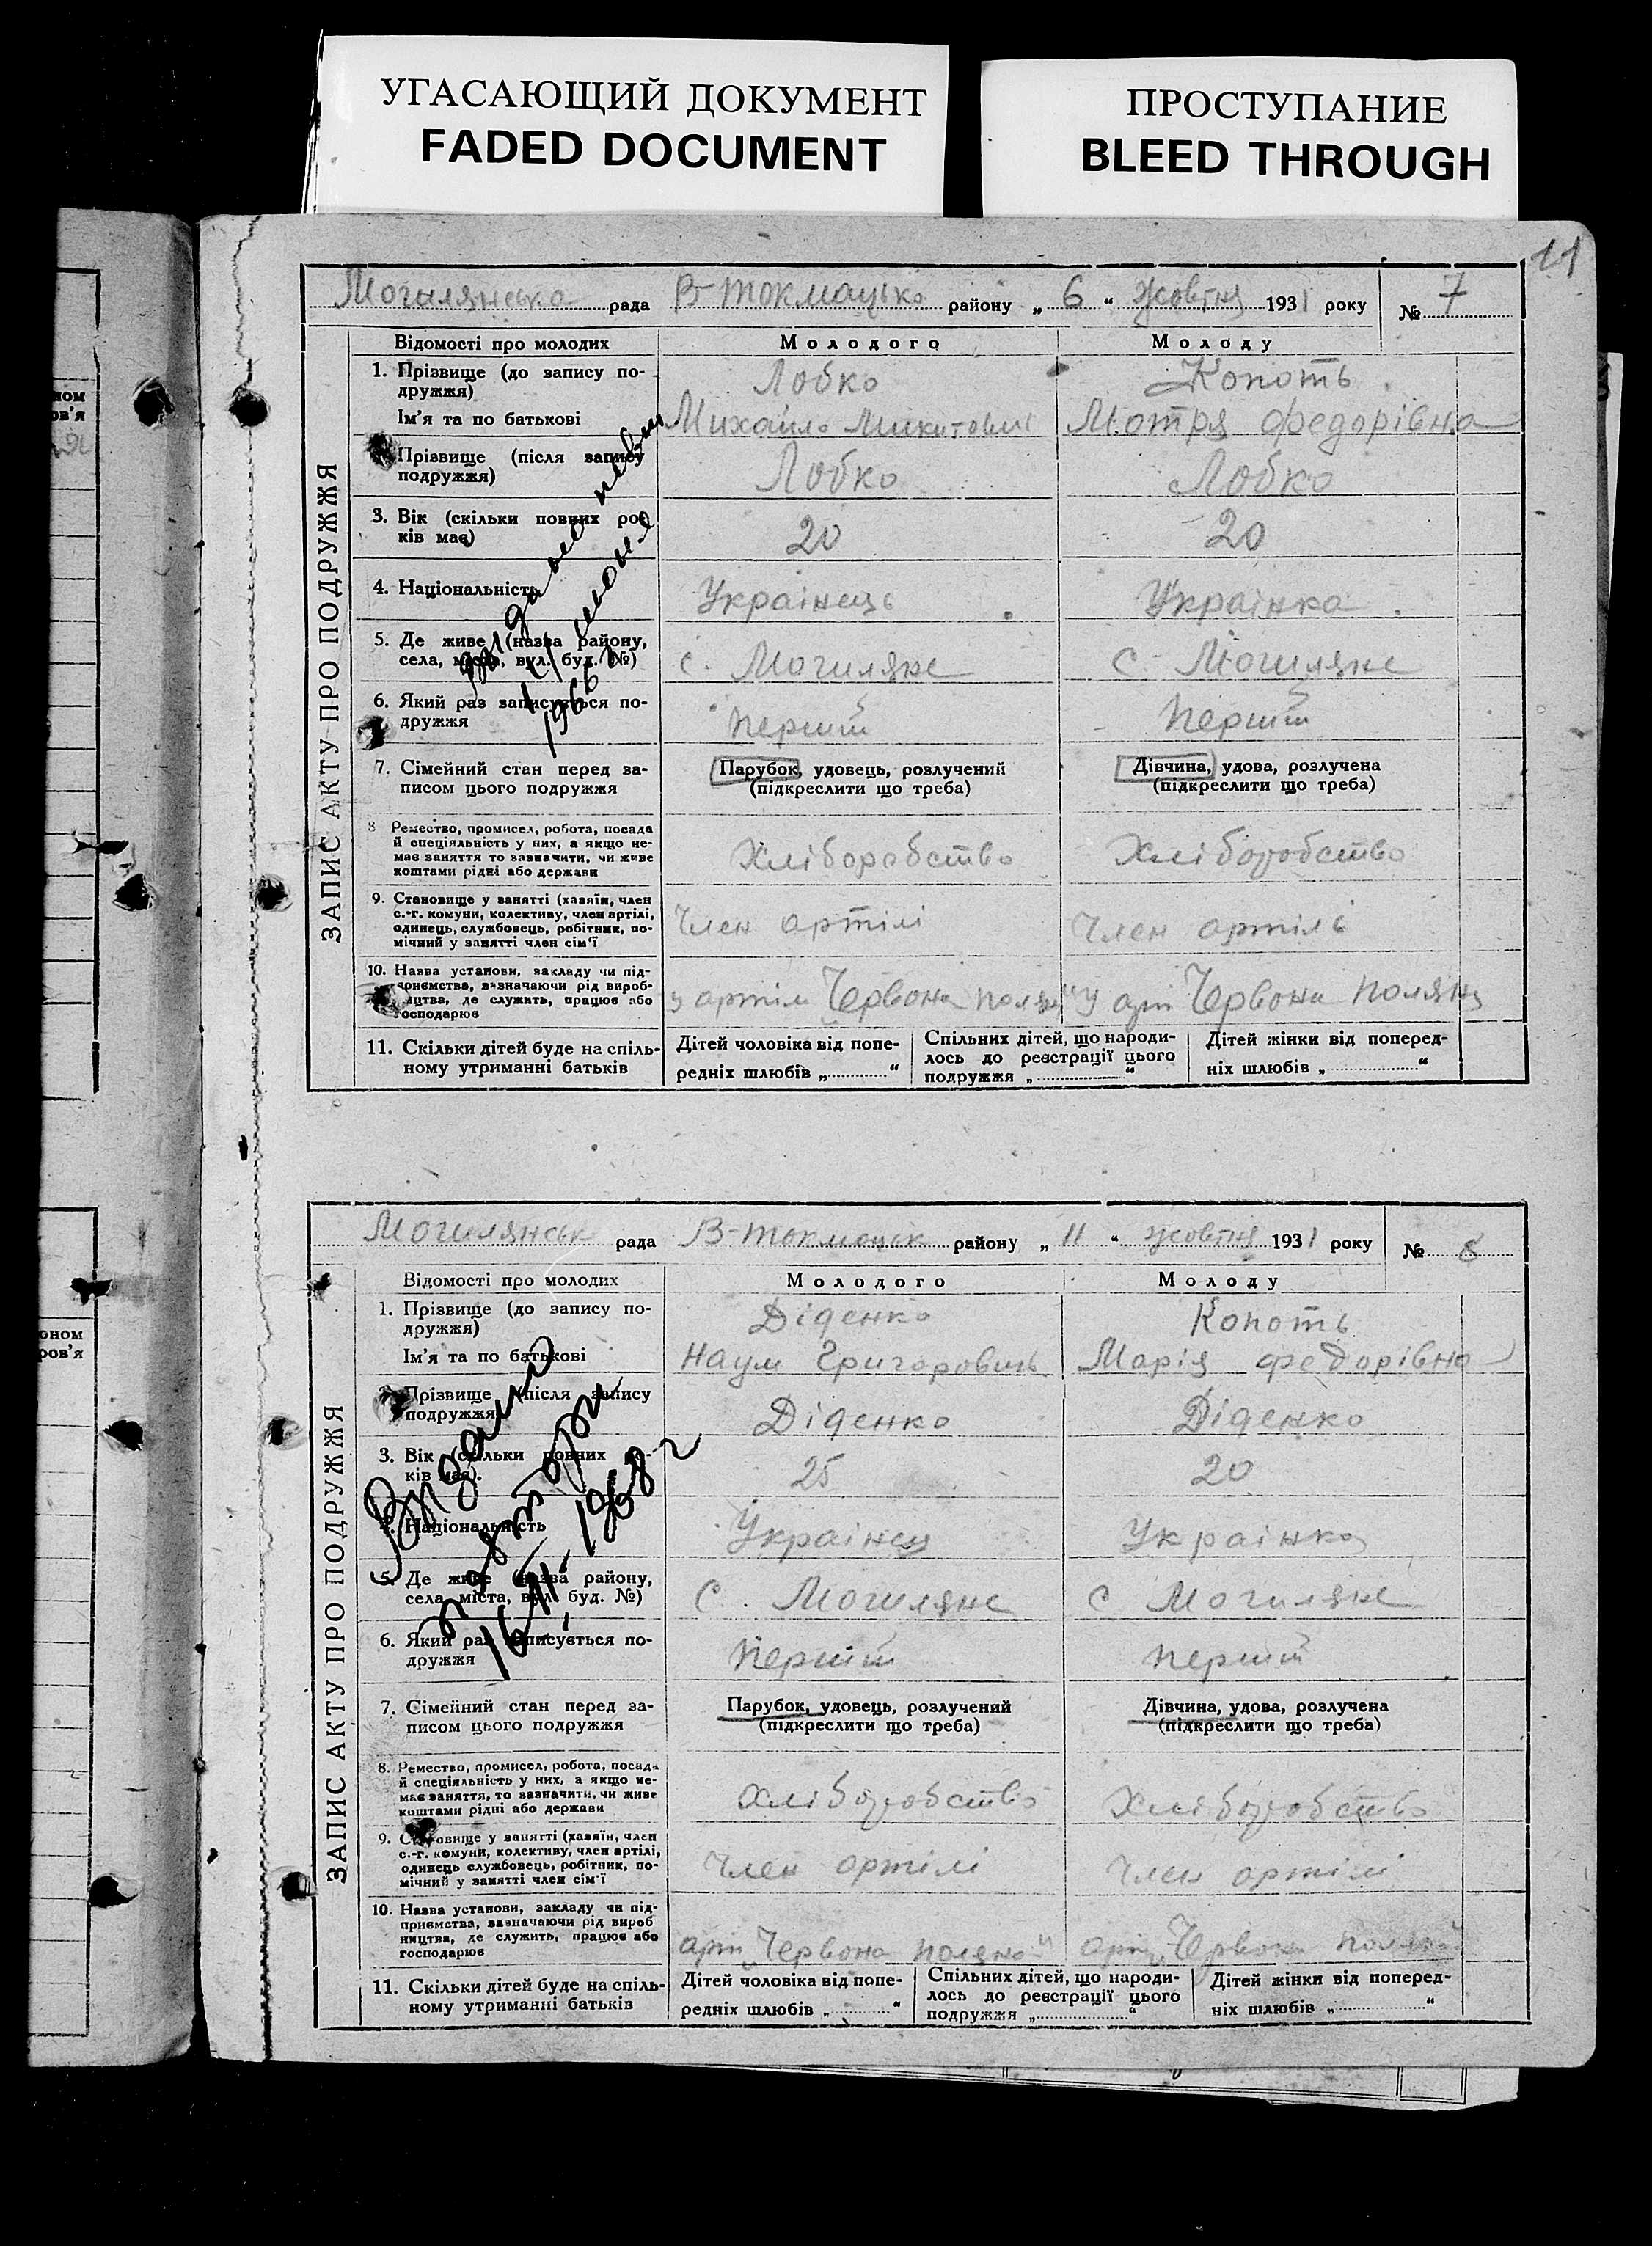 УГАСАЮЩИЙ ДОКУМЕНТ
FADED DOCUMENT
ПРОСТУПАНИЕ
BLEED THROUGH
11
Могилянська рада В-Токмацько району „ 6 “ Жовтня 1931 року № 7
ЗАПИС АКТУ ПРО ПОДРУЖЖЯ
Відомості про молодих Молодого Молоду
1. Прізвище (до запису по-
дружжя) Лобко Копоть
Ім'я та по батькові Михайло Микитович Мотря Федорівна
Прізвище (після запису
подружжя) Лобко Лобко
3. Вік (скільки повних ро-
ків має) 20 20
4. Національність Українець Українка
5. Де живе (назва району,
села, міста, вул. буд. №) с. Могиляне с. Могиляне
6. Який раз записується по-
дружжя Перший Перший
7. Сімейний стан перед за-
писом цього подружжя
Парубок, удовець, розлучений
(підкреслити що треба)
Дівчина, удова, розлучена
(підкреслити що треба)
8 Ремество, промисел, робота, посада
й спеціяльність у них, а якщо не-
має заняття то зазначити, чи живе
коштами рідні або держави
Хліборобство Хліборобство
9. Становище у занятті (хазяїн, член
с.-г. комуни, колективу, член артілі,
одинець, службовець, робітник, по-
мічний у занятті член сім'ї
Член артілі Член артіль
10. Назва установи, закладу чи під-
приємства, зазначаючи рід вироб-
ництва, де служить, працює або
господарює
у артіли Червона Поляна" У арт Червона Поляна
11. Скільки дітей буде на спіль-
ному утриманні батьків
Дітей чоловіка від попе-
редніх шлюбів „ “
Спільних дітей, що народи-
лось до реєстрації цього
подружжя „ “
Дітей жінки від поперед-
ніх шлюбів „ “
1966
Могилянськ рада В-Токмоцьк району „ 11 “ жовтня 1931 року № 8
ЗАПИС АКТУ ПРО ПОДРУЖЖЯ
Відомості про молодих Молодого Молоду
1. Прізвище (до запису по-
дружжя) Діденко Копоть
Ім'я та по батькові Наум Григорович Марія Федорівна
2. Прізвище (після запису
подружжя) Діденко Діденко
3. Вік (скільки повних ро-
ків має). 25 20
4. Національність Українец Українка
5. Де живе (назва району,
села, міста, вул. буд. №) с. Могиляне с Могиляне
6. Який раз записується по-
дружжя Перший Перший
7. Сімейний стан перед за-
писом цього подружжя
Парубок, удовець, розлучений
(підкреслити що треба)
Дівчина, удова, розлучена
(підкреслити що треба)
8. Ремество, промисел, робота, посада
й спеціяльність у них, а якщо не-
має заняття, то зазначити, чи живе
коштами рідні або держави
Хліборобство Хліборобство
9. Становище у занятті (хазяїн, член
с.-г. комуни, колективу, член артілі,
одинець службовець, робітник, по-
мічний у занятті член сім'ї
Член артілі Член артілі
10. Назва установи, закладу чи під-
приємства, зазначаючи рід вироб
ництва, де служить, працює або
господарює
арт Червона поляна" арт Червона поляна
11. Скільки дітей буде на спіль-
ному утриманні батьків
Дітей чоловіка від попе-
редніх шлюбів „ “
Спільних дітей, що народи-
лось до реєстрації цього
подружжя „ “
Дітей жінки від поперед-
ніх шлюбів „ “
Видано
1968 г